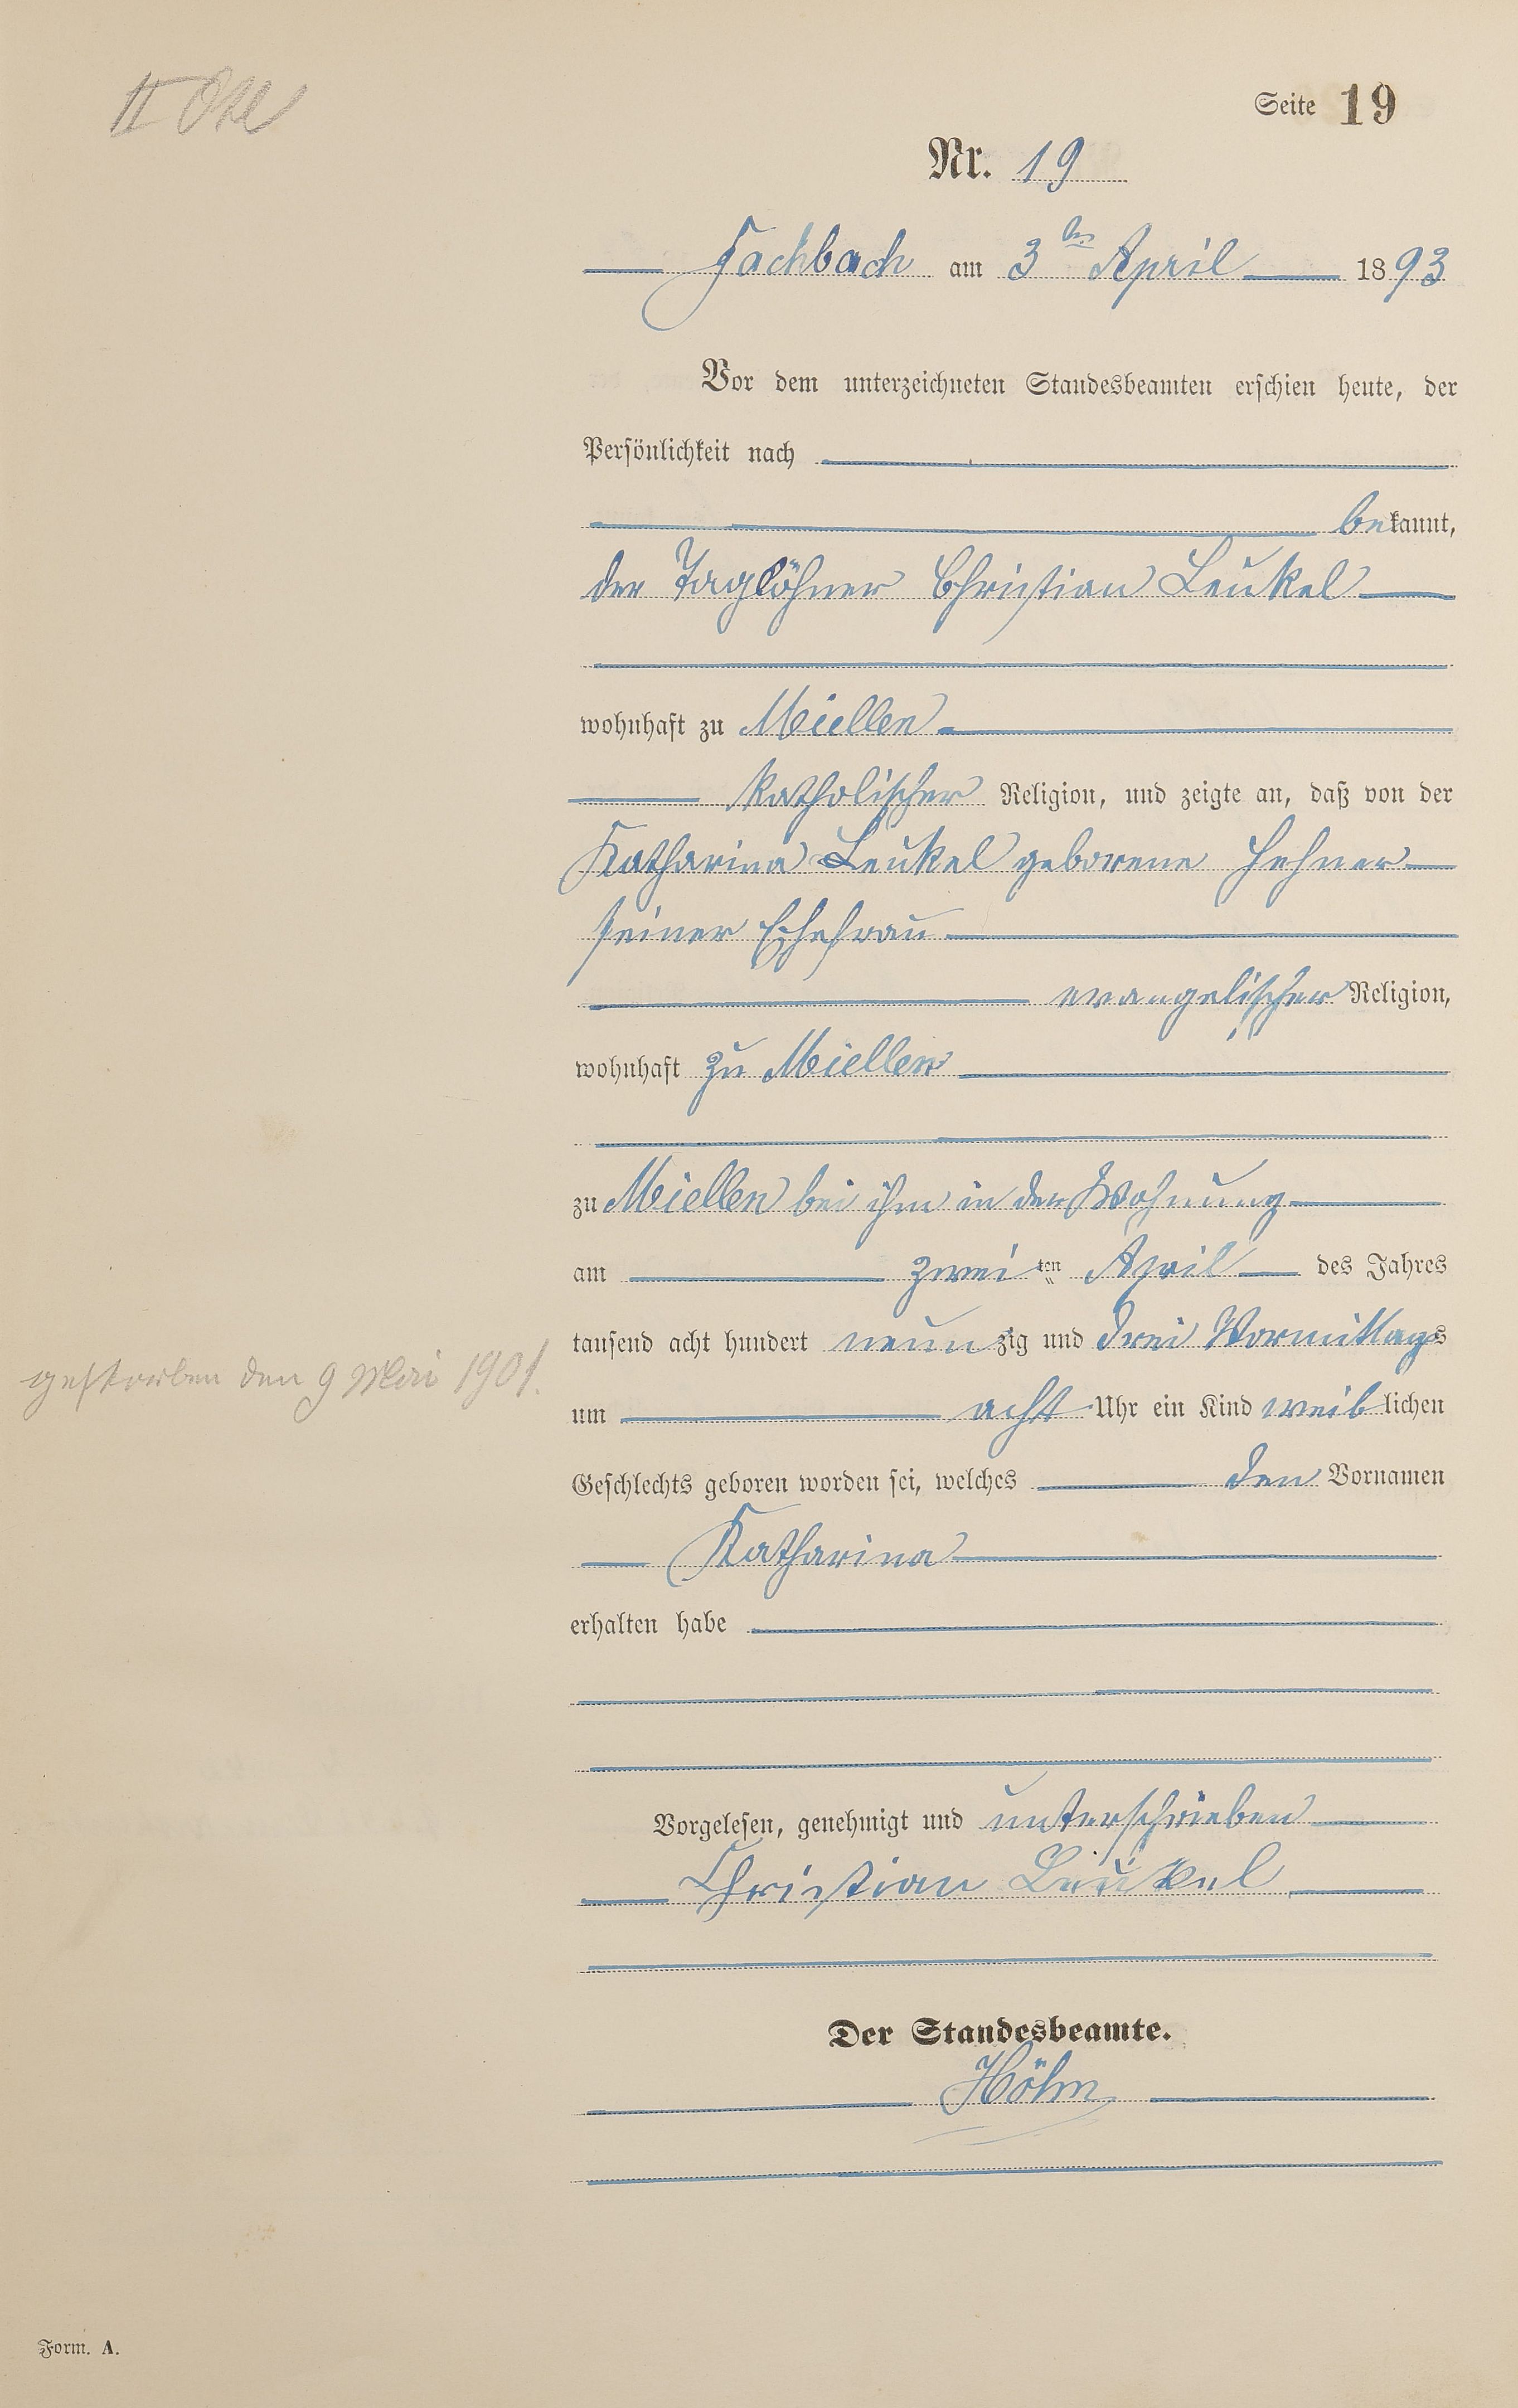 Seite 19
Nr. 19
Fachbach am 3ten April 1893
Vor dem unterzeichneten Standesbeamten erschien heute, der
Persönlichkeit nach
bekannt,
der Taglöhner Christian Leukel
wohnhaft zu Miellen
katholischer Religion, und zeigte an, daß von der
Katharina Leukel geborene Hehner
seiner Ehefrau
evangelischer Religion,
wohnhaft zu Miellen
zu Miellen bei ihm in der Wohnung
am zweiten April des Jahres
tausend acht hundert neunzig und drei Vormittags
gestorben den 9 Mai 1901.
um acht Uhr ein Kind weiblichen
Geschlechts geboren worden sei, welches den Vornamen
Katharina
erhalten habe
Vorgelesen, genehmigt und unterschrieben
Christian Leukel
Der Standesbeamte.
Höhn
Form. A.